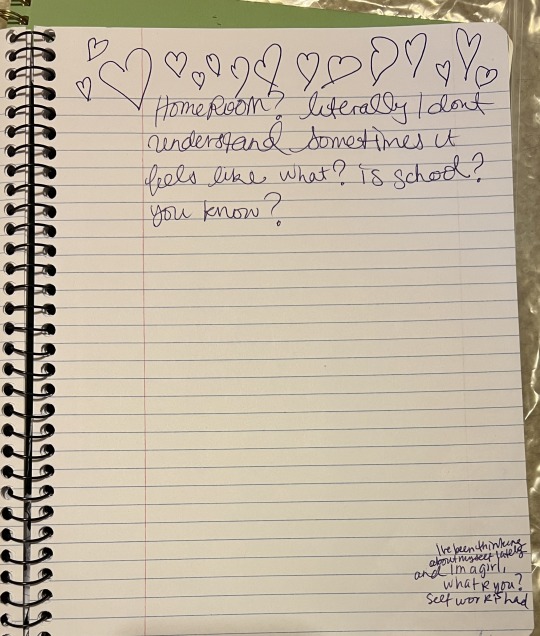 HomeRoom? literally I dont
understand sometimes it
feels like what? is school?
you know?
I've been thinking
about myself lately
and Im a girl,
what R you?
Self work is had